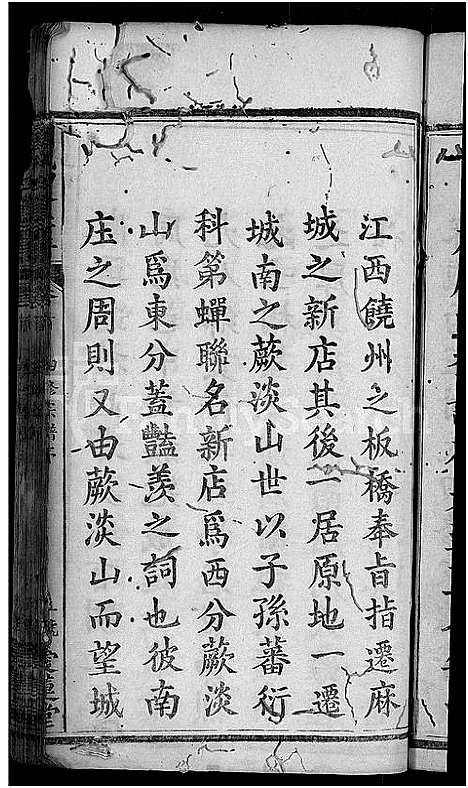 江西饒州之板橋奉旨指遷麻
城之新店其後一居原地一遷
城南之蕨淡山世以子孫蕃衍
科第蟬聯名新店爲西分蕨淡
山爲東分蓋豔羨之詞也彼南
庄之周則又由蕨淡山而望城